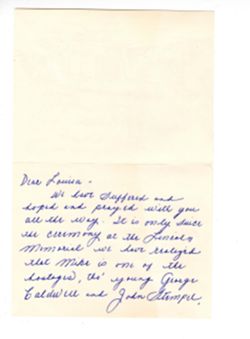 Dear Louisa -
We have suffered and
hoped and prayed with you
all the way. It is only since
the ceremony at the Lincoln
Memorial we have realized
that Mike is one of the
hostages, tho' young George
Caldwell and John Stempel,